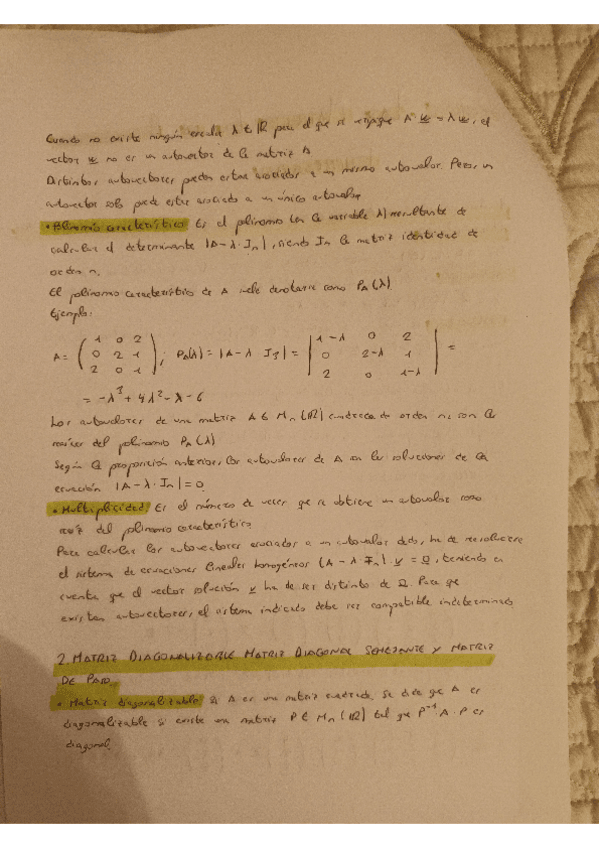 Cuando no existe ningún escalar λ ∈ ℝ para el que se verifique A·v = λv, el
vector v no es un autovector de la matriz A
Distintos autovectores pueden estar asociados a un mismo autovalor. Pero, un
autovector solo puede estar asociado a un único autovalor
• Polinomio característico: Es el polinomio (en la variable λ) resultante de
calcular el determinante |A-λ·In|, siendo In la matriz identidad de
orden n.
El polinomio característico de A suele denotarse como PA(λ)
Ejemplo:
A = (1 0 2; 0 2 1; 2 0 1); PA(λ) = |A-λ I3| = |1-λ 0 2; 0 2-λ 1; 2 0 1-λ| =
= -λ³ + 4λ² - λ - 6
Los autovalores de una matriz A ∈ Mn(ℝ) cuadrada de orden n, son las
raíces del polinomio PA(λ)
Según la proposición anterior, los autovalores de A son las soluciones de la
ecuación |A-λ·In| = 0
• Multiplicidad: Es el número de veces que se obtiene un autovalor como
raíz del polinomio característico.
Para calcular los autovectores asociados a un autovalor dado, ha de resolverse
el sistema de ecuaciones lineales homogéneos (A-λ·In)·v = 0, teniendo en
cuenta que el vector solución v ha de ser distinto de 0. Para que
existan autovectores, el sistema indicado debe ser compatible indeterminado
2. MATRIZ DIAGONALIZABLE MATRIZ DIAGONAL SEMEJANTE Y MATRIZ
DE PASO
• Matriz diagonalizable: Si A es una matriz cuadrada. Se dice que A es
diagonalizable si existe una matriz P ∈ Mn(ℝ) tal que P⁻¹·A·P es
diagonal.